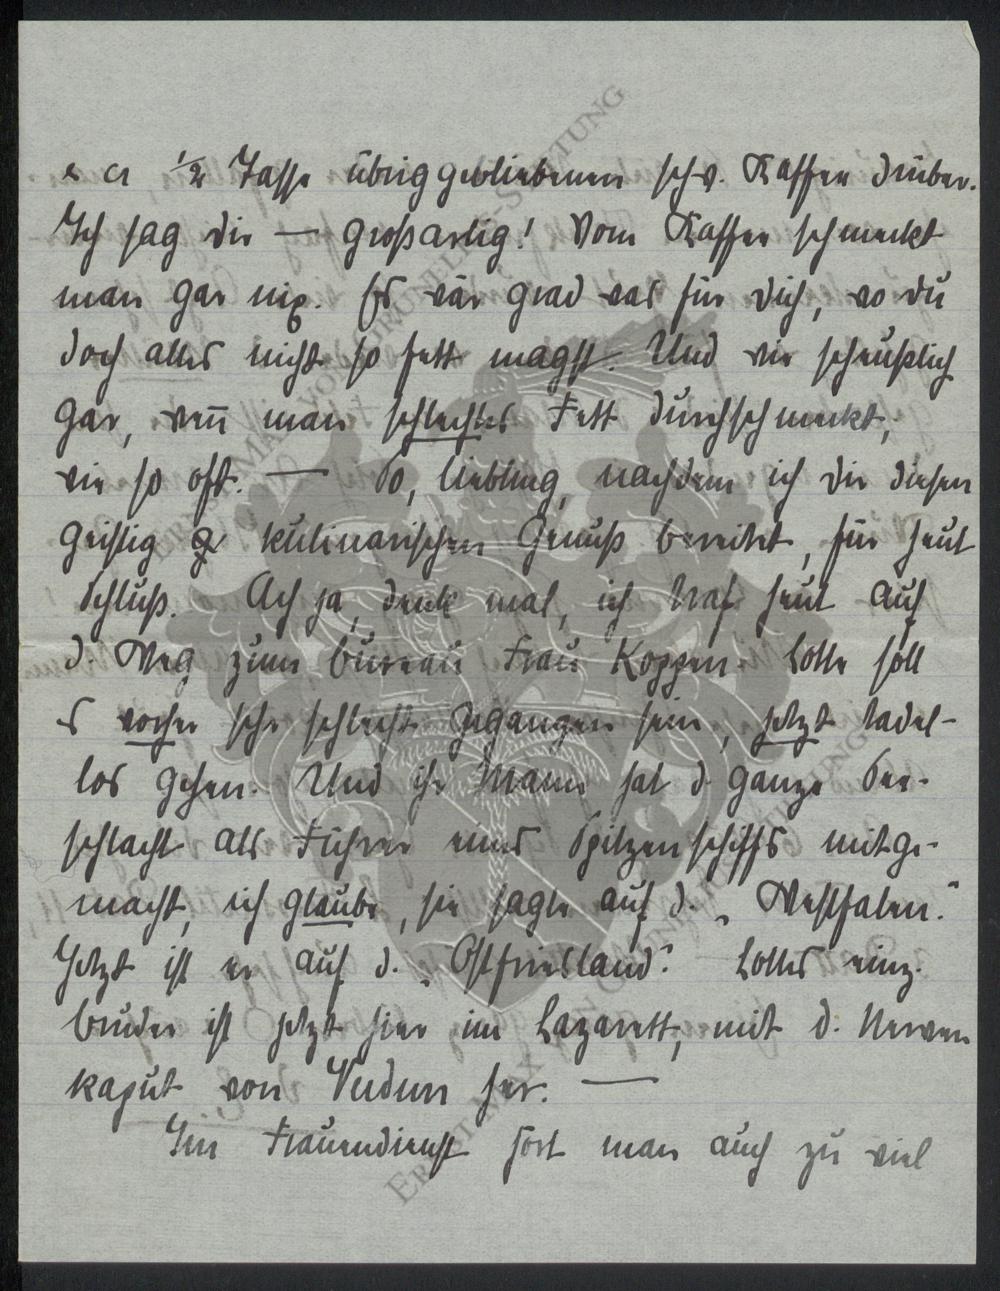 & ca 1/2 Tasse übriggebliebenen schw. Kaffee drüber.
Ich sag dir — großartig! Vom Kaffee schmeckt
man gar nix. Es wär grad was für dich, wo du
doch alles nicht so fett magst. Und wie scheußlich
gar, weñ man schlechtes Fett durchschmeckt,
wie so oft. — So, Liebling, nachdem ich dir diesen
geistig kulinarischen Genuß bereitet, für heut
Schluß. Ach ja, denk mal, ich traf heut auf
d. Weg zum Bureau Frau Koppen. Lotte soll
es vorher sehr schlecht gegangen sein, jetzt tadel-
los gehen. Und ihr Mann hat d. ganze See-
schlacht als Führer eines Spitzenschiffs mitge-
macht, ich glaube, sie sagte auf d. „Westfalen."
Jetzt ist er auf d. „Ostfriesland". Lottes einz.
Bruder ist jetzt hier im Lazarett, mit d. Nerven
kaput von Verdun her. —
Im Frauendienst hört man auch zu viel